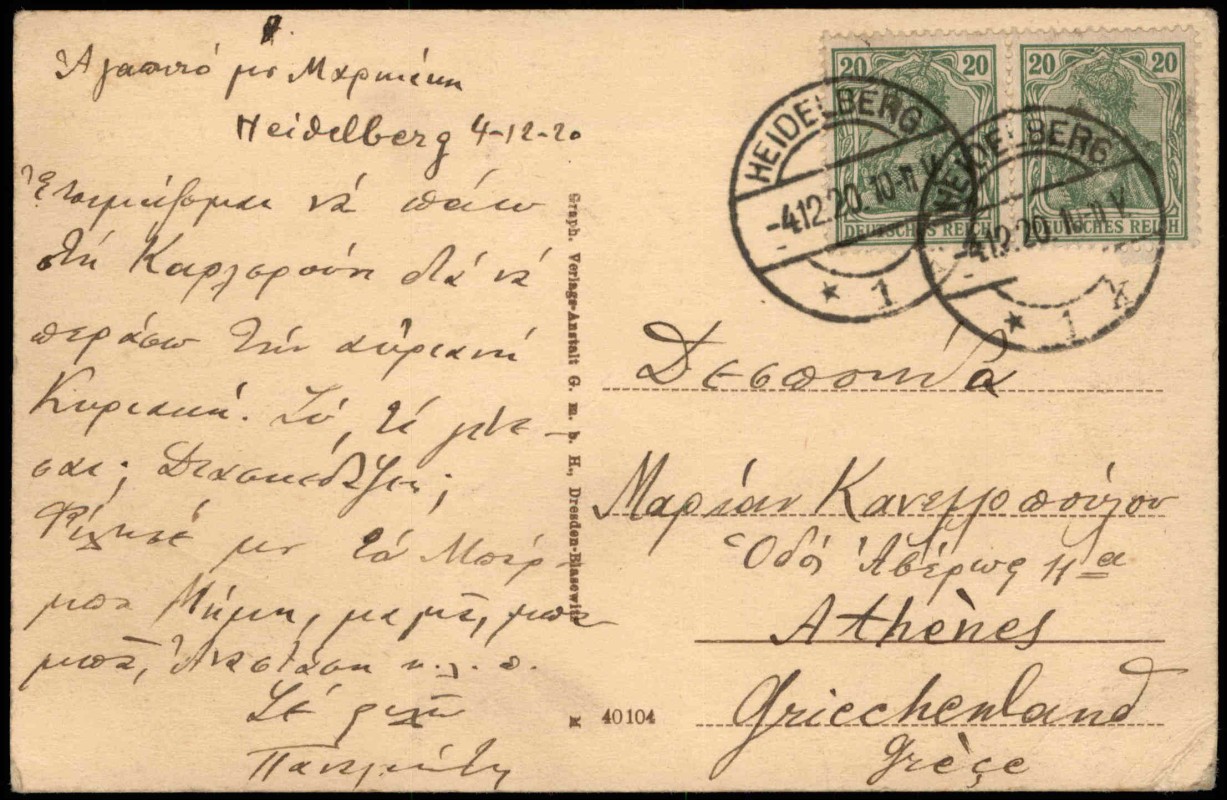 Ἀγαπητό μου Μαρικάκι
Heidelberg 4-12-20
Ἑτοιμάζομαι νά πάω
στή Καρλσρούη γιά νά
περάσω τήν αὐριανή
Κυριακή. Σύ, τί γίνε-
σαι; Διασκεδάζεις;
Φίλησέ μου τό Μπέρ-
μπα Μήμη, μαμά, μπα-
μπᾶ, Ἀναστάση κ.λ.π.
Σέ φιλῶ
Παντελής
Graph. Verlags-Anstalt G. m. b. H., Dresden-Blasewitz
40104
20 20
DEUTSCHES REICH
20 20
DEUTSCHES REICH
HEIDELBERG
-4.12.20.10-11 V.
* 1
HEIDELBERG
-4.12.20.10-11 V.
* 1 K
Δεσποινίδα
Μαρίαν Κανελλοπούλου
Ὁδός Ἀβέρωφ 11α
Athènes
Griechenland
Grèce